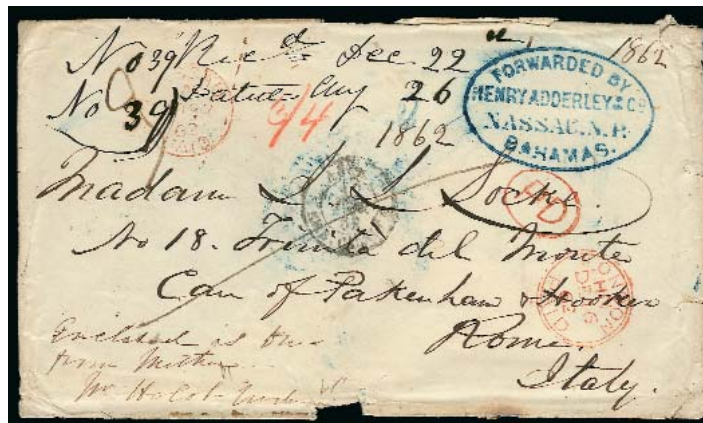 No 39 Rec d Dec 22 1862
No 39 Dated Aug 26
1862
9/4
FORWARDED BY
HENRY ADDERLEY & Co
NASSAU. N. P.
BAHAMAS.
Madam S L Locke
PD
No 18. Trinita del Monte
Care of Pakenham & Hooker
Rome.
Italy.
LONDON
CITY
Enclosed is
from Mother